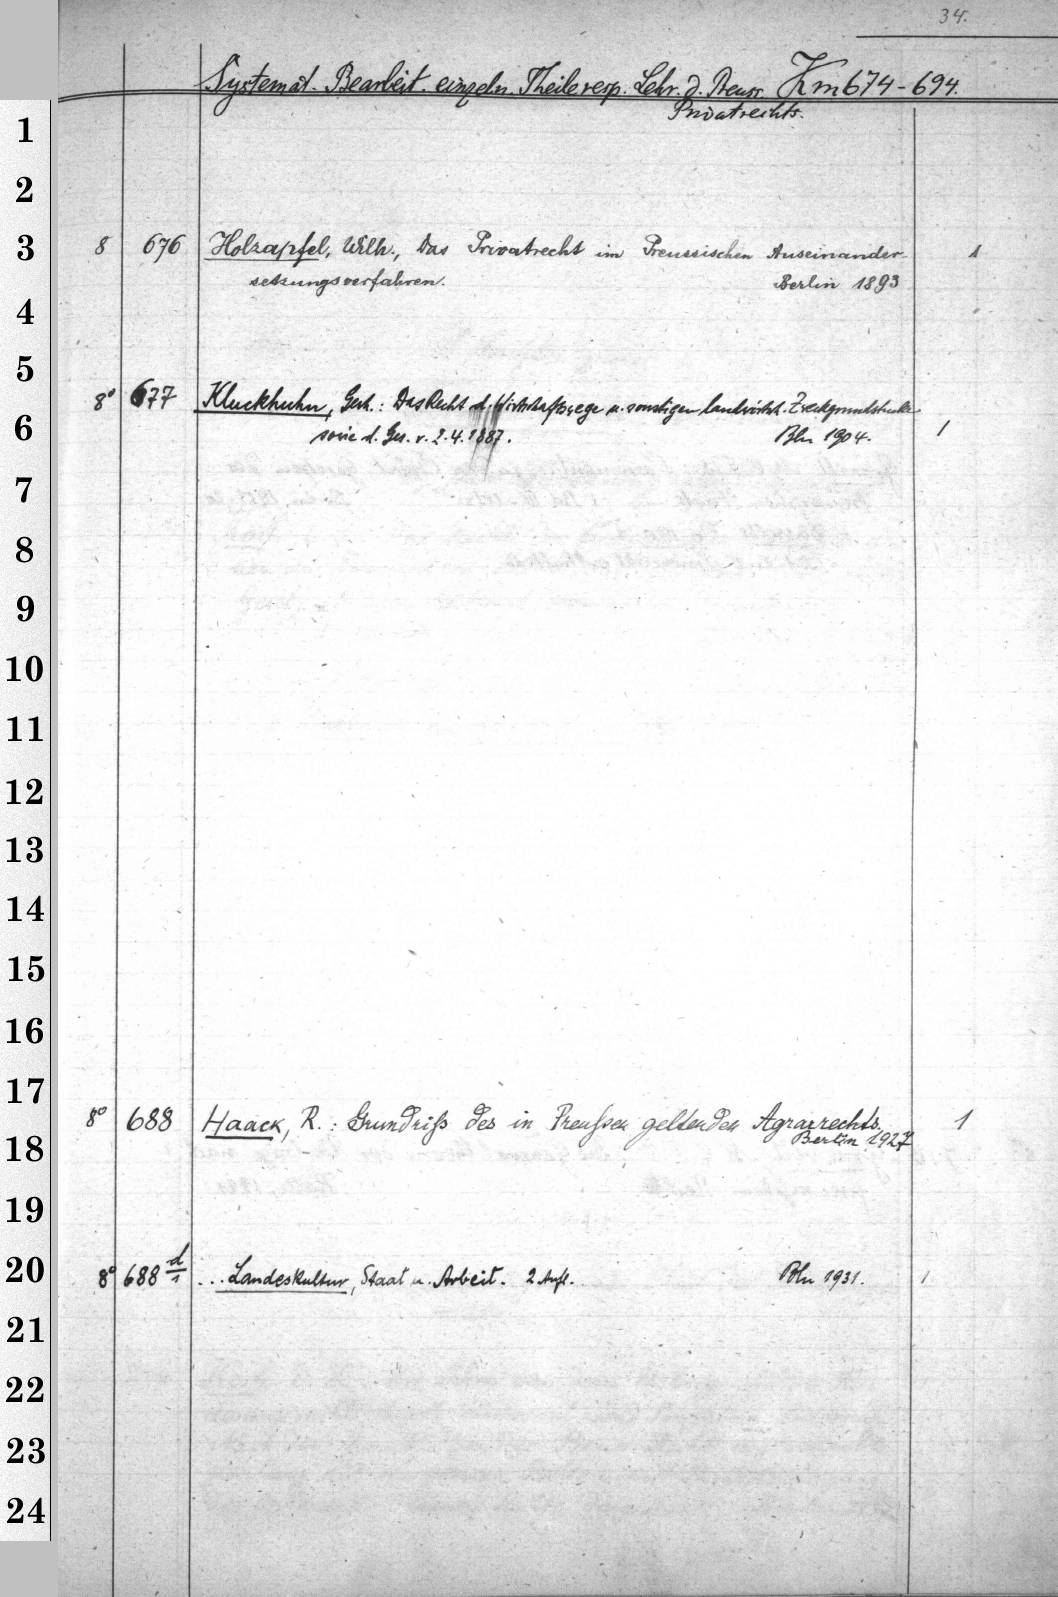 34.
Systemat. Bearbeit. einzeln. Theile resp. Lehr. d. Preuss. Km 674-694.
Privatrechts.
1
2
3 8 676 Holzapfel, Wilh., Das Privatrecht im Preussischen Auseinander- 1
setzungsverfahren. Berlin 1893
4
5
8° 677 Kluckhuhn, Gerh.: Das Recht d. Wirtschaftswege u. sonstigen landwirtsch. Zweckgrundstücke
6 sowie d. Ges. v. 2.4.1887. Bln 1904. 1
7
8
9
10
11
12
13
14
15
16
17
8° 688 Haack, R.: Grundriß des in Preußen geltenden Agrarrechts. 1
18 Berlin 1927
19
20 8° 688 d/1 ... Landeskultur, Staat u. Arbeit. 2 Aufl. Bln 1931. 1
21
22
23
24